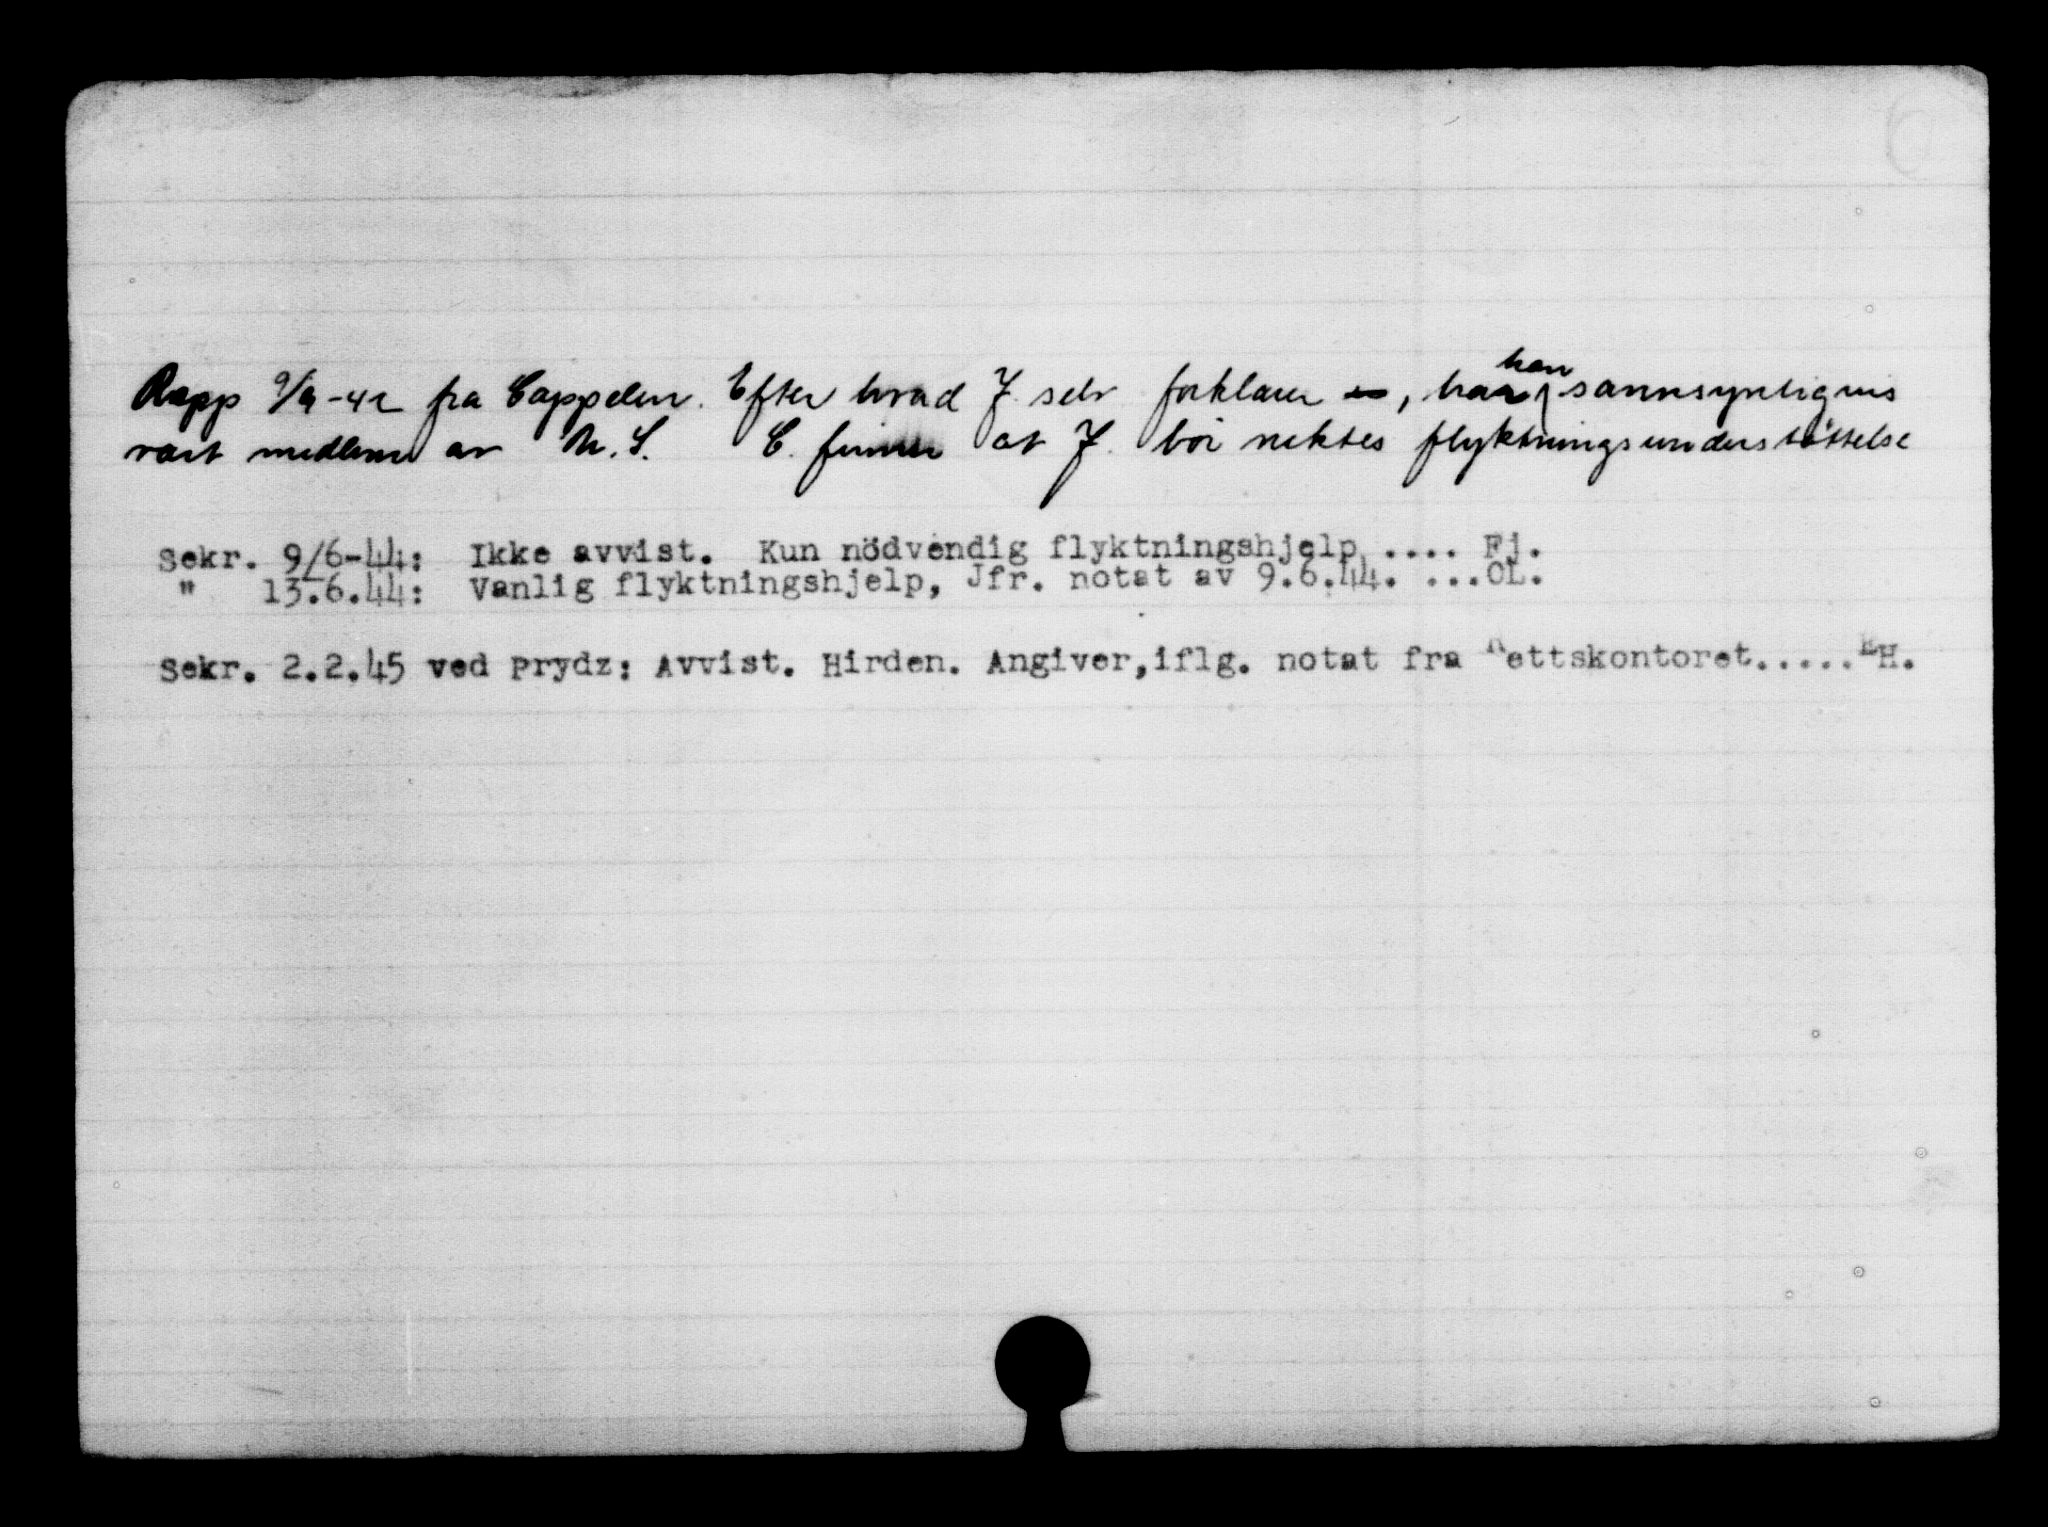 Rapp 9/9-42 fra Cappelen. Efter hvad J. selv forklarer, har han sannsynligvis
vært medlem av N.S. C. finner at J. bör nektes flyktningsunderstöttelse
Sekr. 9/6-44: Ikke avvist. Kun nödvendig flyktningshjelp .... Fj.
" 13.6.44: Vanlig flyktningshjelp, Jfr. notat av 9.6.44. ...OL.
Sekr. 2.2.45 ved Prydz: Avvist. Hirden. Angiver,iflg. notat fra Rettskontoret.....EH.